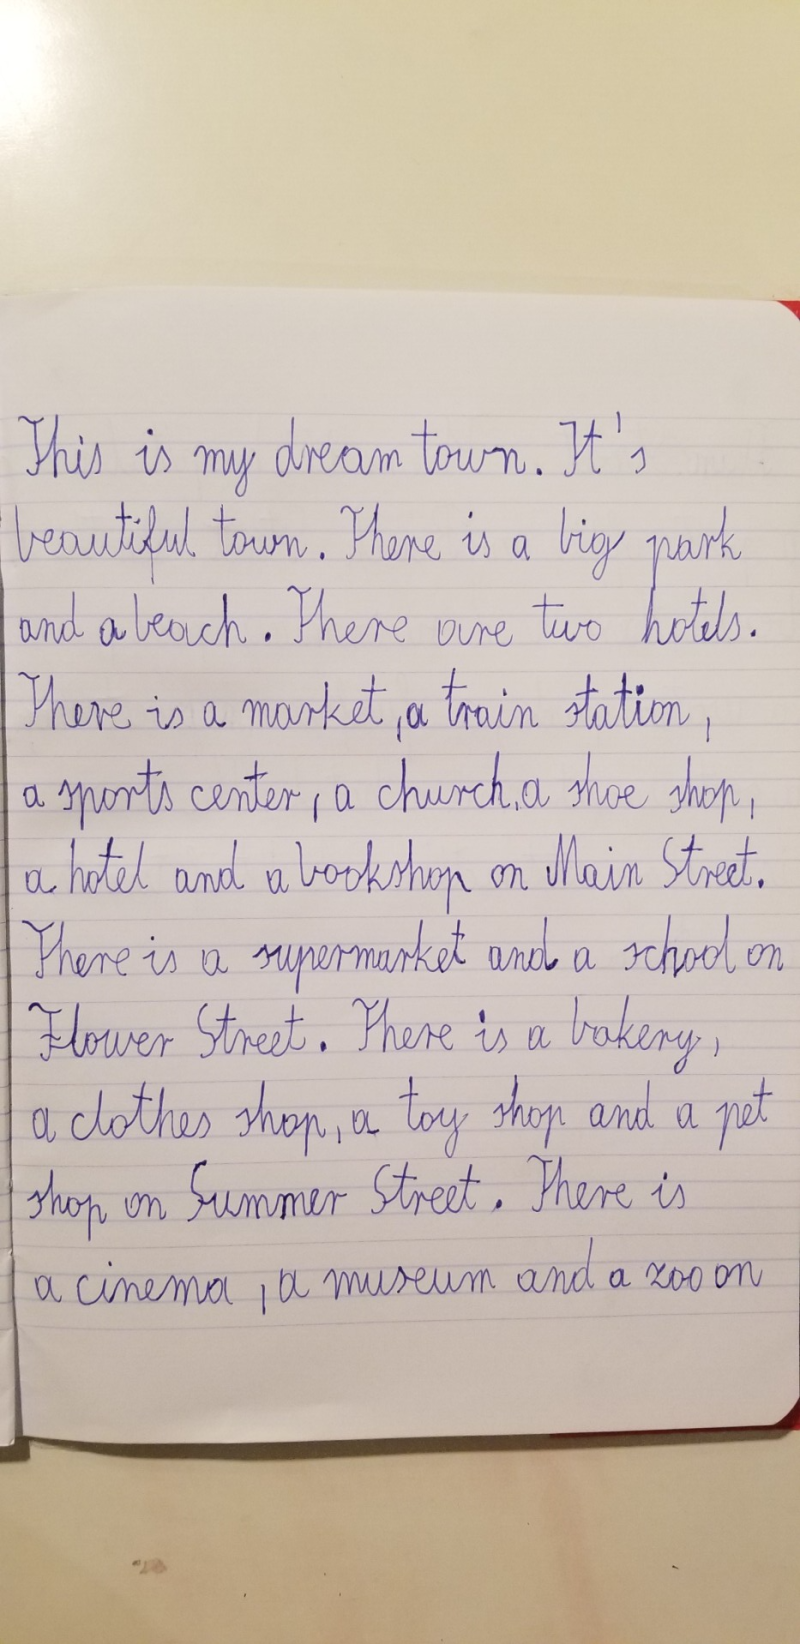 This is my dream town. It's
beautiful town. There is a big park
and a beach. There are two hotels.
There is a market, a train station,
a sports center, a church, a shoe shop,
a hotel and a bookshop on Main Street.
There is a supermarket and a school on
Flower Street. There is a bakery,
a clothes shop, a toy shop and a pet
shop on Summer Street. There is
a cinema, a museum and a zoo on